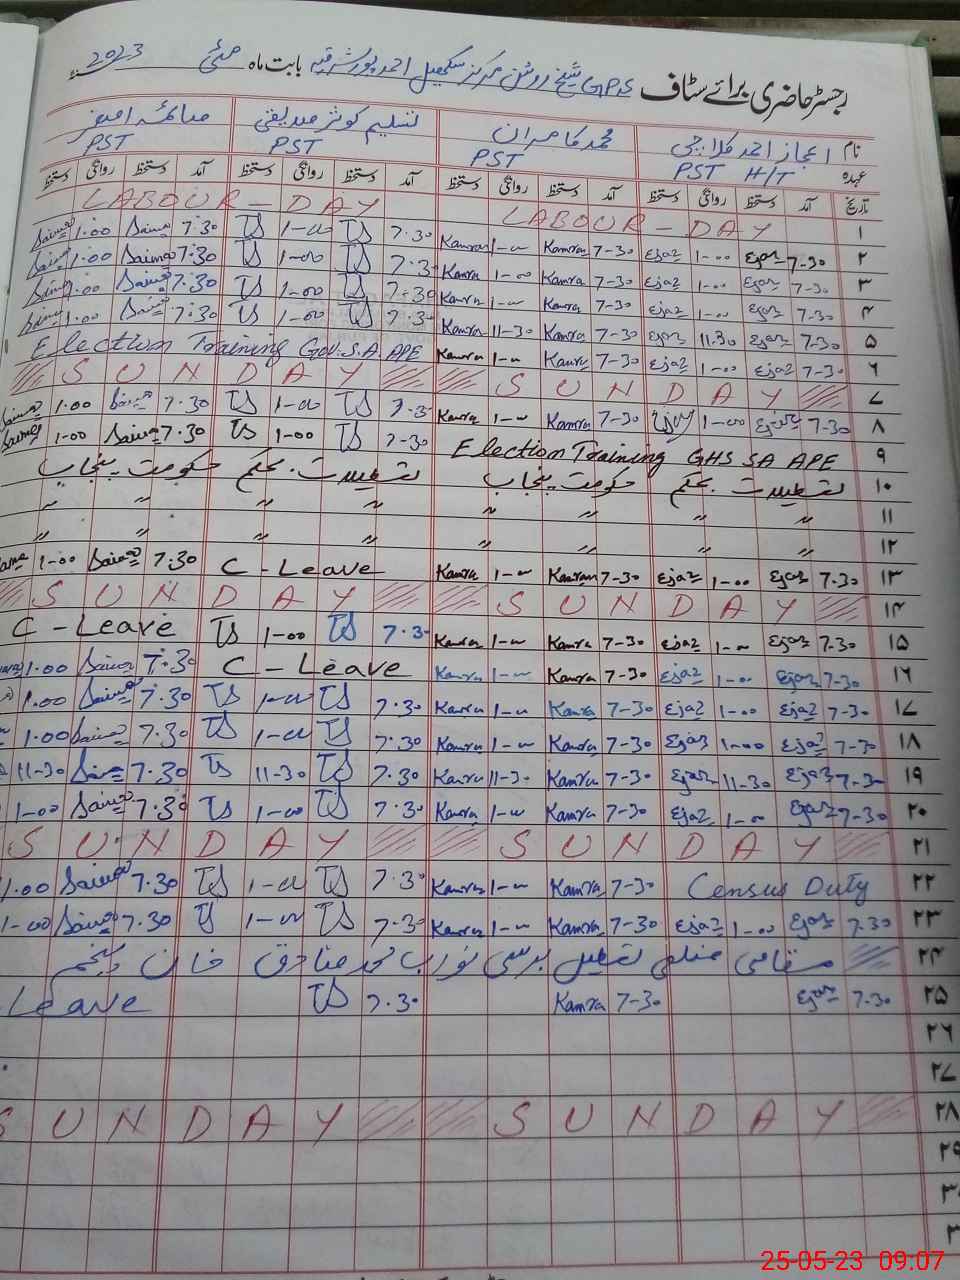 رجسٹر حاضری برائے سٹاف GPS شیخ روشن مرکز سکھیل احمد پور شرقیہ بابت ماہ مئی 2023
نام اعجاز احمد کلاچی محمد کامران تسلیم کوثر صدیقی صائمہ
عہدہ PST H/T PST PST PST
تاریخ آمد دستخط روانگی دستخط آمد دستخط روانگی دستخط آمد دستخط روانگی دستخط آمد دستخط روانگی دستخط
۱ LABOUR-DAY LABOUR-DAY
۲ 7-30 Ejaz 1-00 Ejaz 7-30 Kamran 1-00 Kamran 7.30 TS 1-00 TS 7.30 Saima 1.00 Saima
۳ 7-30 Ejaz 1-00 Ejaz 7-30 Kamra 1-00 Kamra 7.30 TS 1-00 TS 7.30 Saima 1.00 Saima
۴ 7-30 Ejaz 1-00 Ejaz 7-30 Kamra 1-00 Kamra 7.30 TS 1-00 TS 7.30 Saima 1.00 Saima
۵ 7-30 Ejaz 11.30 Ejaz 7-30 Kamra 11-30 Kamra 7.30 TS 1-00 TS 7.30 Saima 1.00 Saima
۶ 7-30 Ejaz 1-00 Ejaz 7-30 Kamra 1-00 Kamra Election Training Gov.S.A. APE
۷ SUNDAY SUNDAY
۸ 7-30 Ejaz 1-00 7-30 Kamra 1-00 Kamra 7.30 TS 1-00 TS 7.30 Saima 1.00 Saima
۹ Election Training GHS SA APE 7-30 TS 1-00 TS 7.30 Saima 1-00 Saima
۱۰ تعطیلات بحکم حکومت پنجاب تعطیلات بحکم حکومت پنجاب
۱۱ 〃 〃 〃 〃 〃 〃
۱۲ 〃 〃 〃 〃 〃 〃
۱۳ 7.30 Ejaz 1-00 Ejaz 7-30 Kamran 1-00 Kamra C-Leave 7.30 Saima 1-00
۱۴ SUNDAY SUNDAY
۱۵ 7-30 Ejaz 1-00 Ejaz 7-30 Kamra 1-00 Kamra 7.30 TS 1-00 TS C-Leave
۱۶ 7-30 Ejaz 1-00 Ejaz 7-30 Kamra 1-00 Kamra C-Leave 7.30 Saima 1.00
۱۷ 7-30 Ejaz 1-00 Ejaz 7-30 Kamra 1-00 Kamra 7.30 TS 1-00 TS 7.30 Saima 1.00
۱۸ 7-30 Ejaz 1-00 Ejaz 7-30 Kamra 1-00 Kamra 7.30 TS 1-00 TS 7.30 Saima 1.00
۱۹ 7-30 Ejaz 11-30 Ejaz 7-30 Kamra 11-30 Kamra 7.30 TS 11-30 TS 7.30 Saima 11-30
۲۰ 7-30 Ejaz 1-00 Ejaz 7-30 Kamra 1-00 Kamra 7.30 TS 1-00 TS 7.30 Saima 1-00
۲۱ SUNDAY SUNDAY
۲۲ Census Duty 7-30 Kamra 1-00 Kamra 7.30 TS 1-00 TS 7.30 Saima 1.00
۲۳ 7.30 Ejaz 1-00 Ejaz 7-30 Kamra 1-00 Kamra 7.30 TS 1-00 TS 7.30 Saima 1-00
۲۴ مقامی ضلعی تعطیل برسی نواب محمد صادق خان پنجم
۲۵ 7.30 Ejaz 7-30 Kamra 7.30 TS Leave
۲۶
۲۷
۲۸ SUNDAY SUNDAY
۲۹
25-05-23 09:07